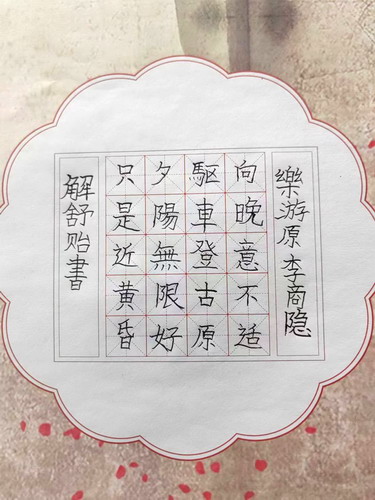 樂游原 李商隐
向晚意不适
驅車登古原
夕陽無限好
只是近黄昏
解舒贻書